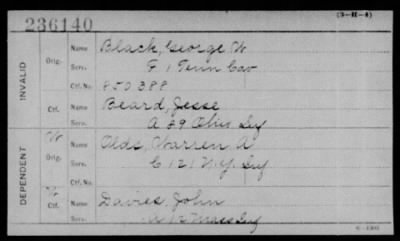 236140 (3-H-4)
INVALID
Orig. Name Black, George W.
Serv. F 1 Tenn Cav
Ctf. No. 850388
Ctf. Name Beard, Jesse
Serv. A 29 Ohio Inf
DEPENDENT
W Orig. Name Olds, Warren A
Serv. C 121 N.Y. Inf
Ctf. No.
Ctf. Name Davies, John
Serv. 12 Mass Inf